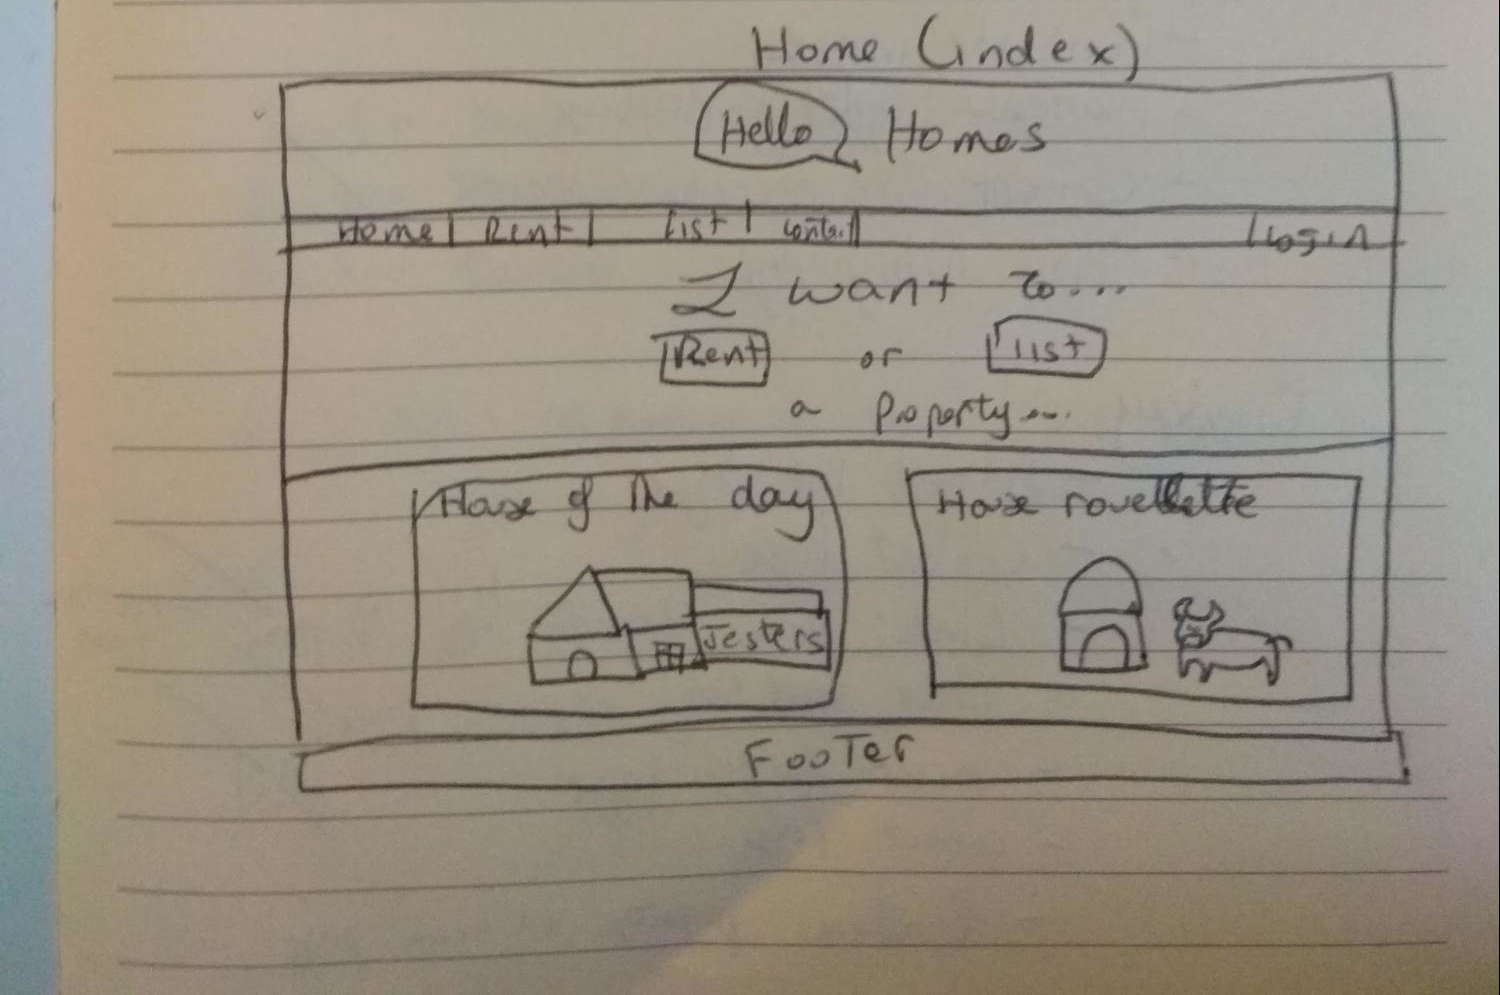 Home (index)
Hello Homes
Home Rent List Contact Login
I want to...
Rent or list
a Property...
House of The day
House roulette
Jesters
Footer